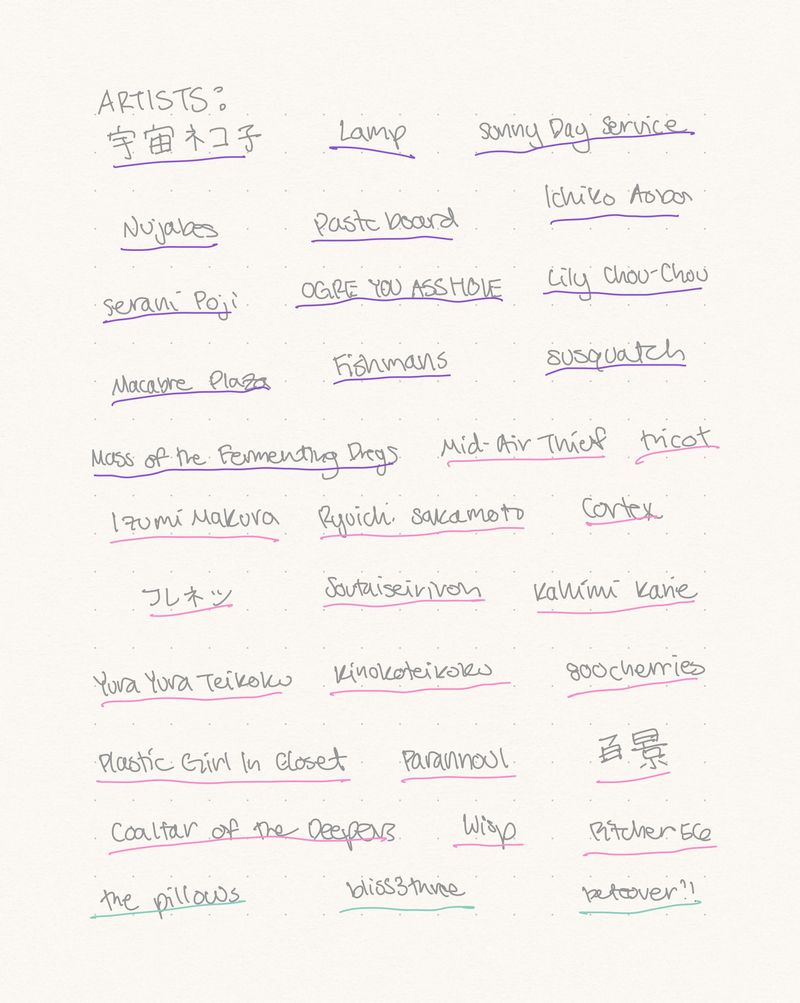 ARTISTS:
宇宙ネコ子 Lamp Sunny Day Service
Ichiko Aoba
Nujabes Pasteboard
Serani Poji OGRE YOU ASSHOLE Lily Chou-Chou
Macabre Plaza Fishmans susquatch
Mass of the Fermenting Dregs Mid-Air Thief tricot
Izumi Makura Ryuichi Sakamoto Cortex
フレネシ Soutaiseiriron Kahimi Karie
Yura Yura Teikoku Kinokoteikoku 800cherries
Plastic Girl In Closet Parannoul 百景
Coaltar of the Deepers Wisp Pitcher56
the pillows bliss3three betcover!!